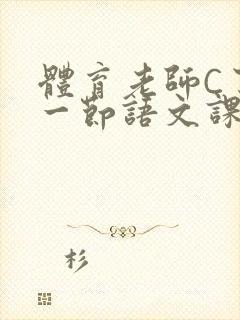 體育老師C
一節語文課
杉